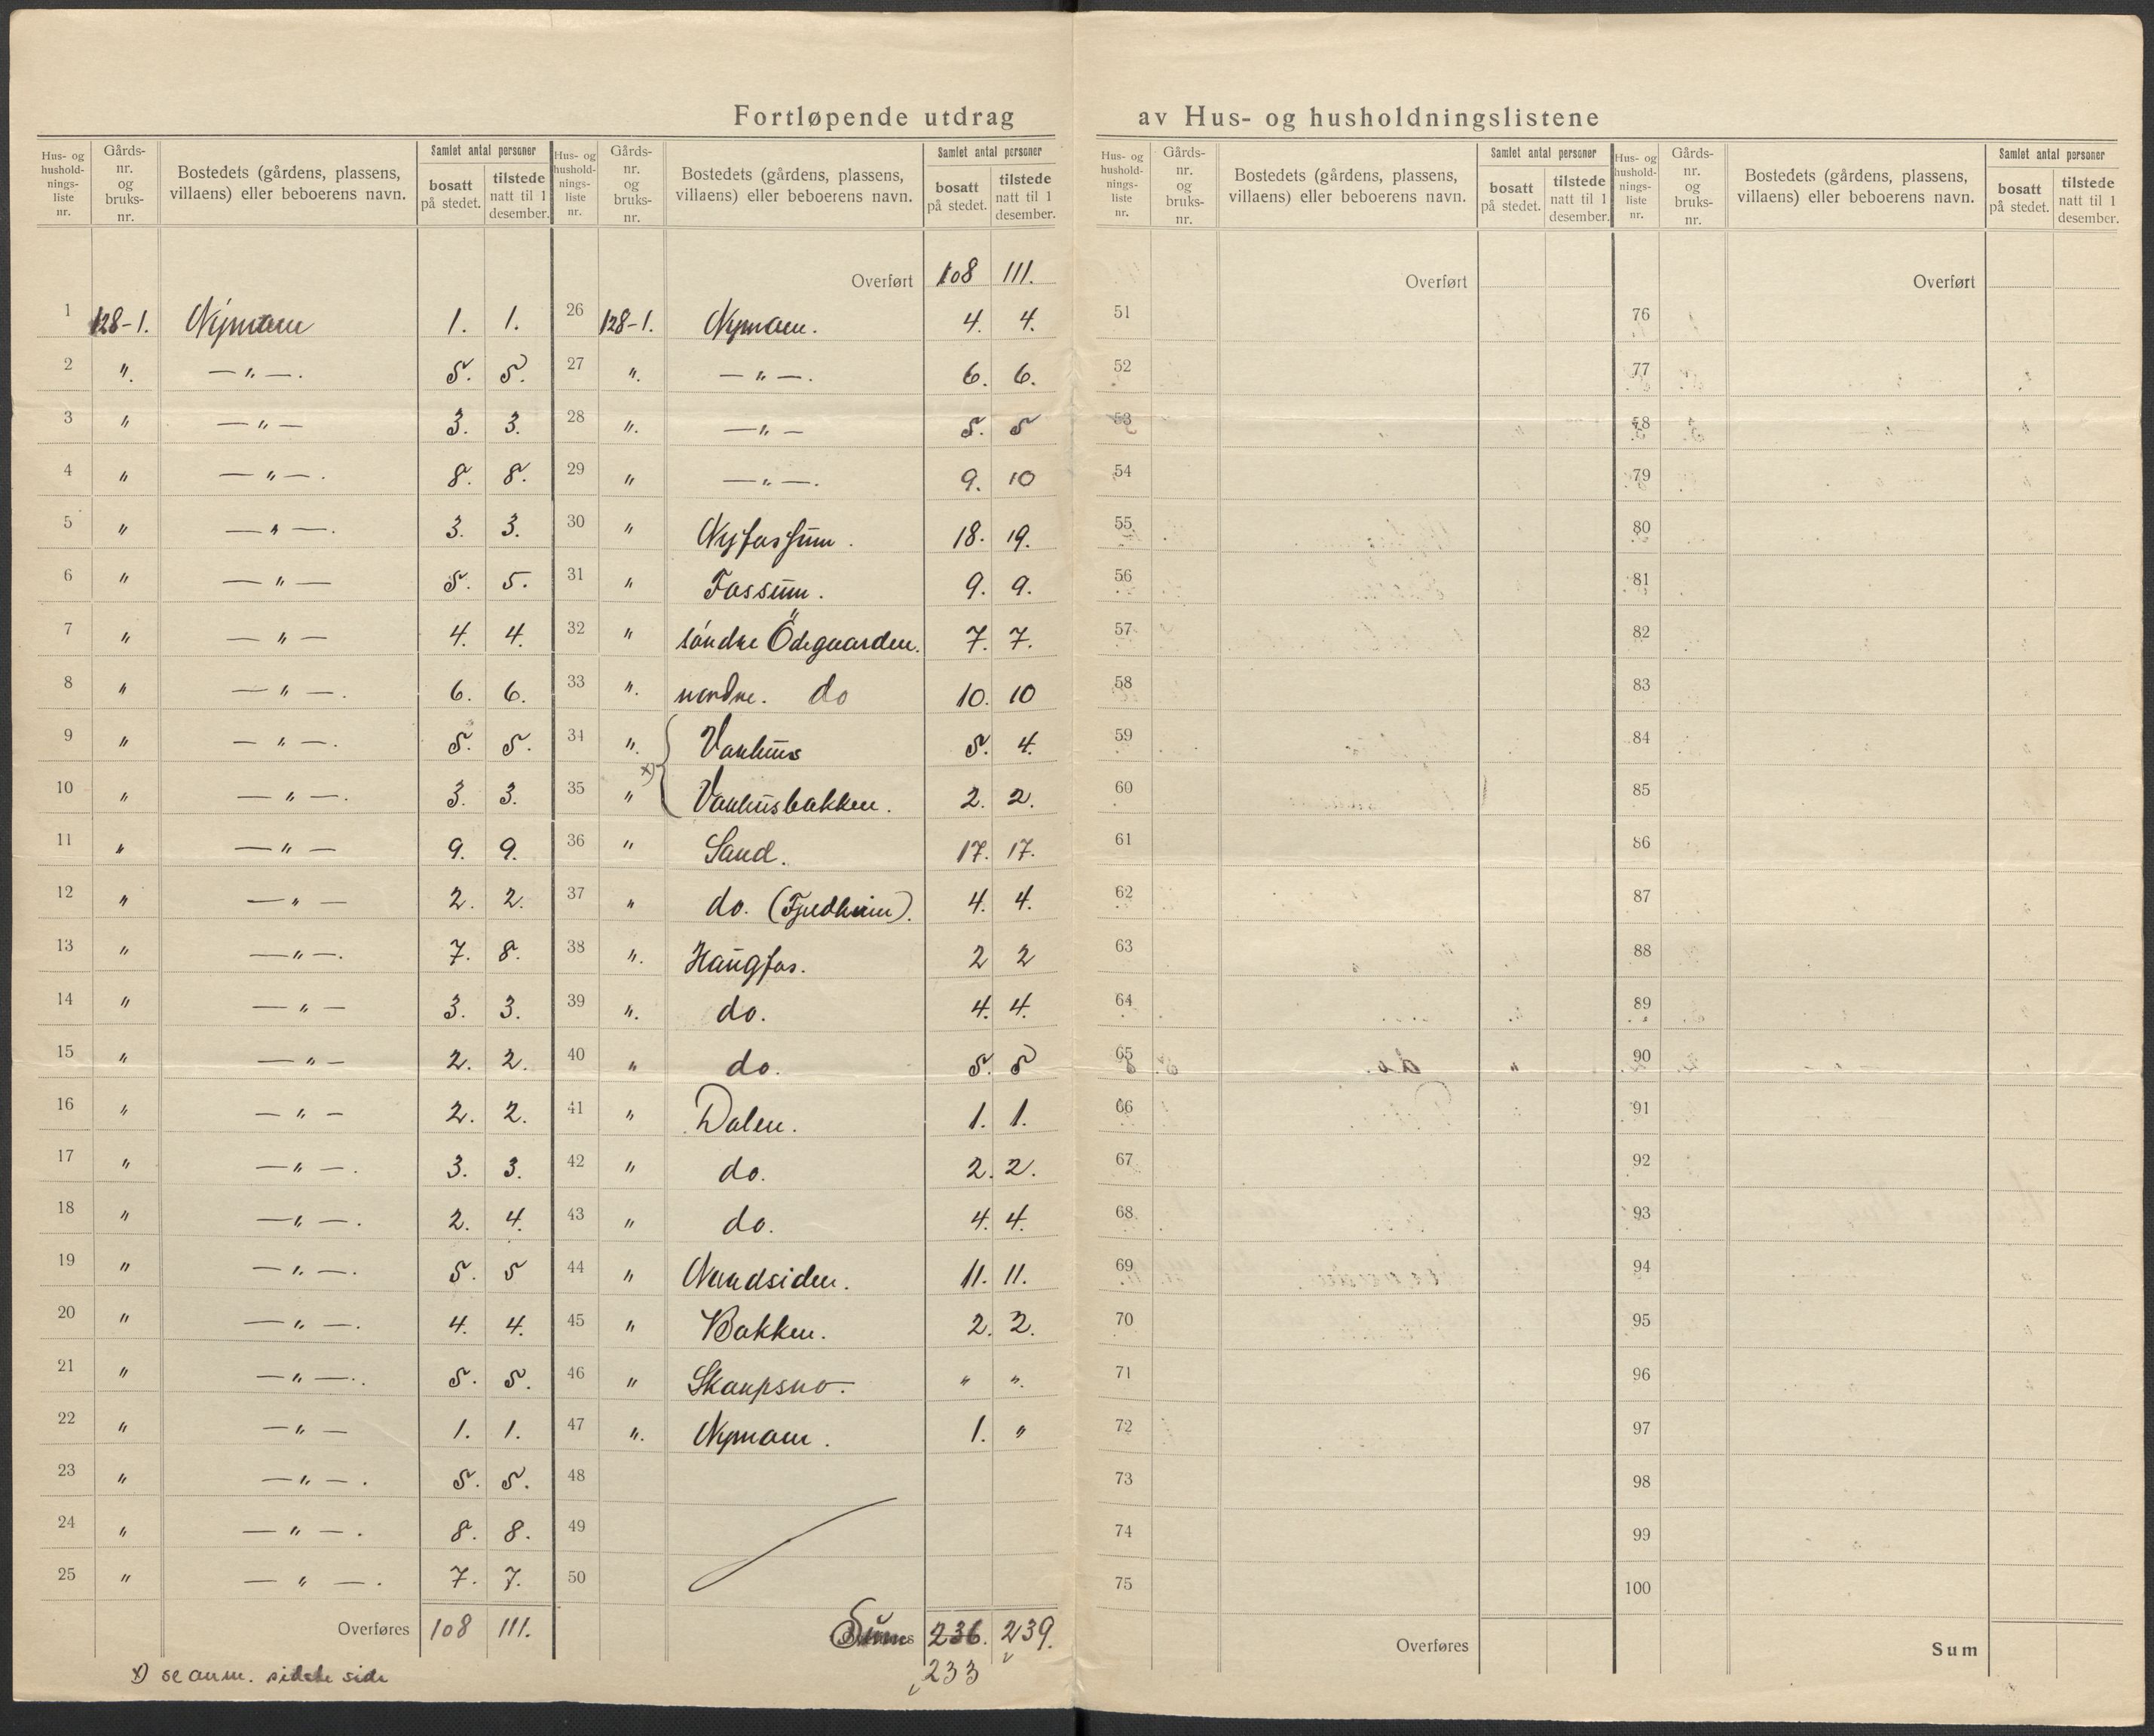 Fortløpende utdrag av Hus- og husholdningslistene
Hus- og hushold- nings- liste nr. | Gårds- nr. og bruks- nr. | Bostedets (gårdens, plassens, villaens) eller beboerens navn. | Samlet antal personer | bosatt på stedet. | tilstede natt til 1 desember.
1 128-1. Nymoen 1. 1.
2 ". — " —. 5. 5.
3 " — " — 3. 3.
4 " — " —. 8. 8.
5 " — " —. 3. 3.
6 " — " — 5. 5.
7 " — " — 4. 4.
8 " — " —. 6. 6.
9 " — " —. 5. 5.
10 " — " —. 3. 3.
11 " — " — 9. 9.
12 " — " — 2. 2.
13 " — " —. 7. 8.
14 " — " — 3. 3.
15 " — " — 2. 2.
16 " — " — 2. 2.
17 " — " —. 3. 3.
18 " — " —. 2. 4.
19 " — " —. 5. 5
20 " — " —. 4. 4.
21 " — " —. 5. 5.
22 " — " — 1. 1.
23 " — " —. 5. 5.
24 " — " —. 8. 8.
25 " — " —. 7. 7.
Overføres 108 111.
x) se anm. sidste side
Hus- og hushold- nings- liste nr. | Gårds- nr. og bruks- nr. | Bostedets (gårdens, plassens, villaens) eller beboerens navn. | Samlet antal personer | bosatt på stedet. | tilstede natt til 1 desember.
Overført 108 111.
26 128-1. Nymoen. 4. 4.
27 ". — " —. 6. 6.
28 ". — " — 5. 5
29 " — " —. 9. 10
30 " Nyfossum. 18. 19.
31 " Fossum. 9. 9.
32 " söndre Ödegaarden. 7. 7.
33 ". nordre. do 10. 10
34 ". Vanhus 5. 4.
x)
35 " Vanhusbakken. 2. 2.
36 " Sand. 17. 17.
37 " do. (Fjeldheim). 4. 4.
38 ". Haugfos. 2 2
39 ". do. 4. 4.
40 " do. 5. 5
41 " Dalen. 1. 1.
42 " do. 2. 2.
43 " do. 4. 4.
44 " Nordsiden. 11. 11.
45 " Bakken. 2. 2.
46 " Skarpsno. " ".
47 ". Nymoen. 1. "
48
49
50
Sum 236. 239.
233
Hus- og hushold- nings- liste nr. | Gårds- nr. og bruks- nr. | Bostedets (gårdens, plassens, villaens) eller beboerens navn. | Samlet antal personer | bosatt på stedet. | tilstede natt til 1 desember.
Overført
51
52
53
54
55
56
57
58
59
60
61
62
63
64
65
66
67
68
69
70
71
72
73
74
75
Overføres
Hus- og hushold- nings- liste nr. | Gårds- nr. og bruks- nr. | Bostedets (gårdens, plassens, villaens) eller beboerens navn. | Samlet antal personer | bosatt på stedet. | tilstede natt til 1 desember.
Overført
76
77
78
79
80
81
82
83
84
85
86
87
88
89
90
91
92
93
94
95
96
97
98
99
100
Sum